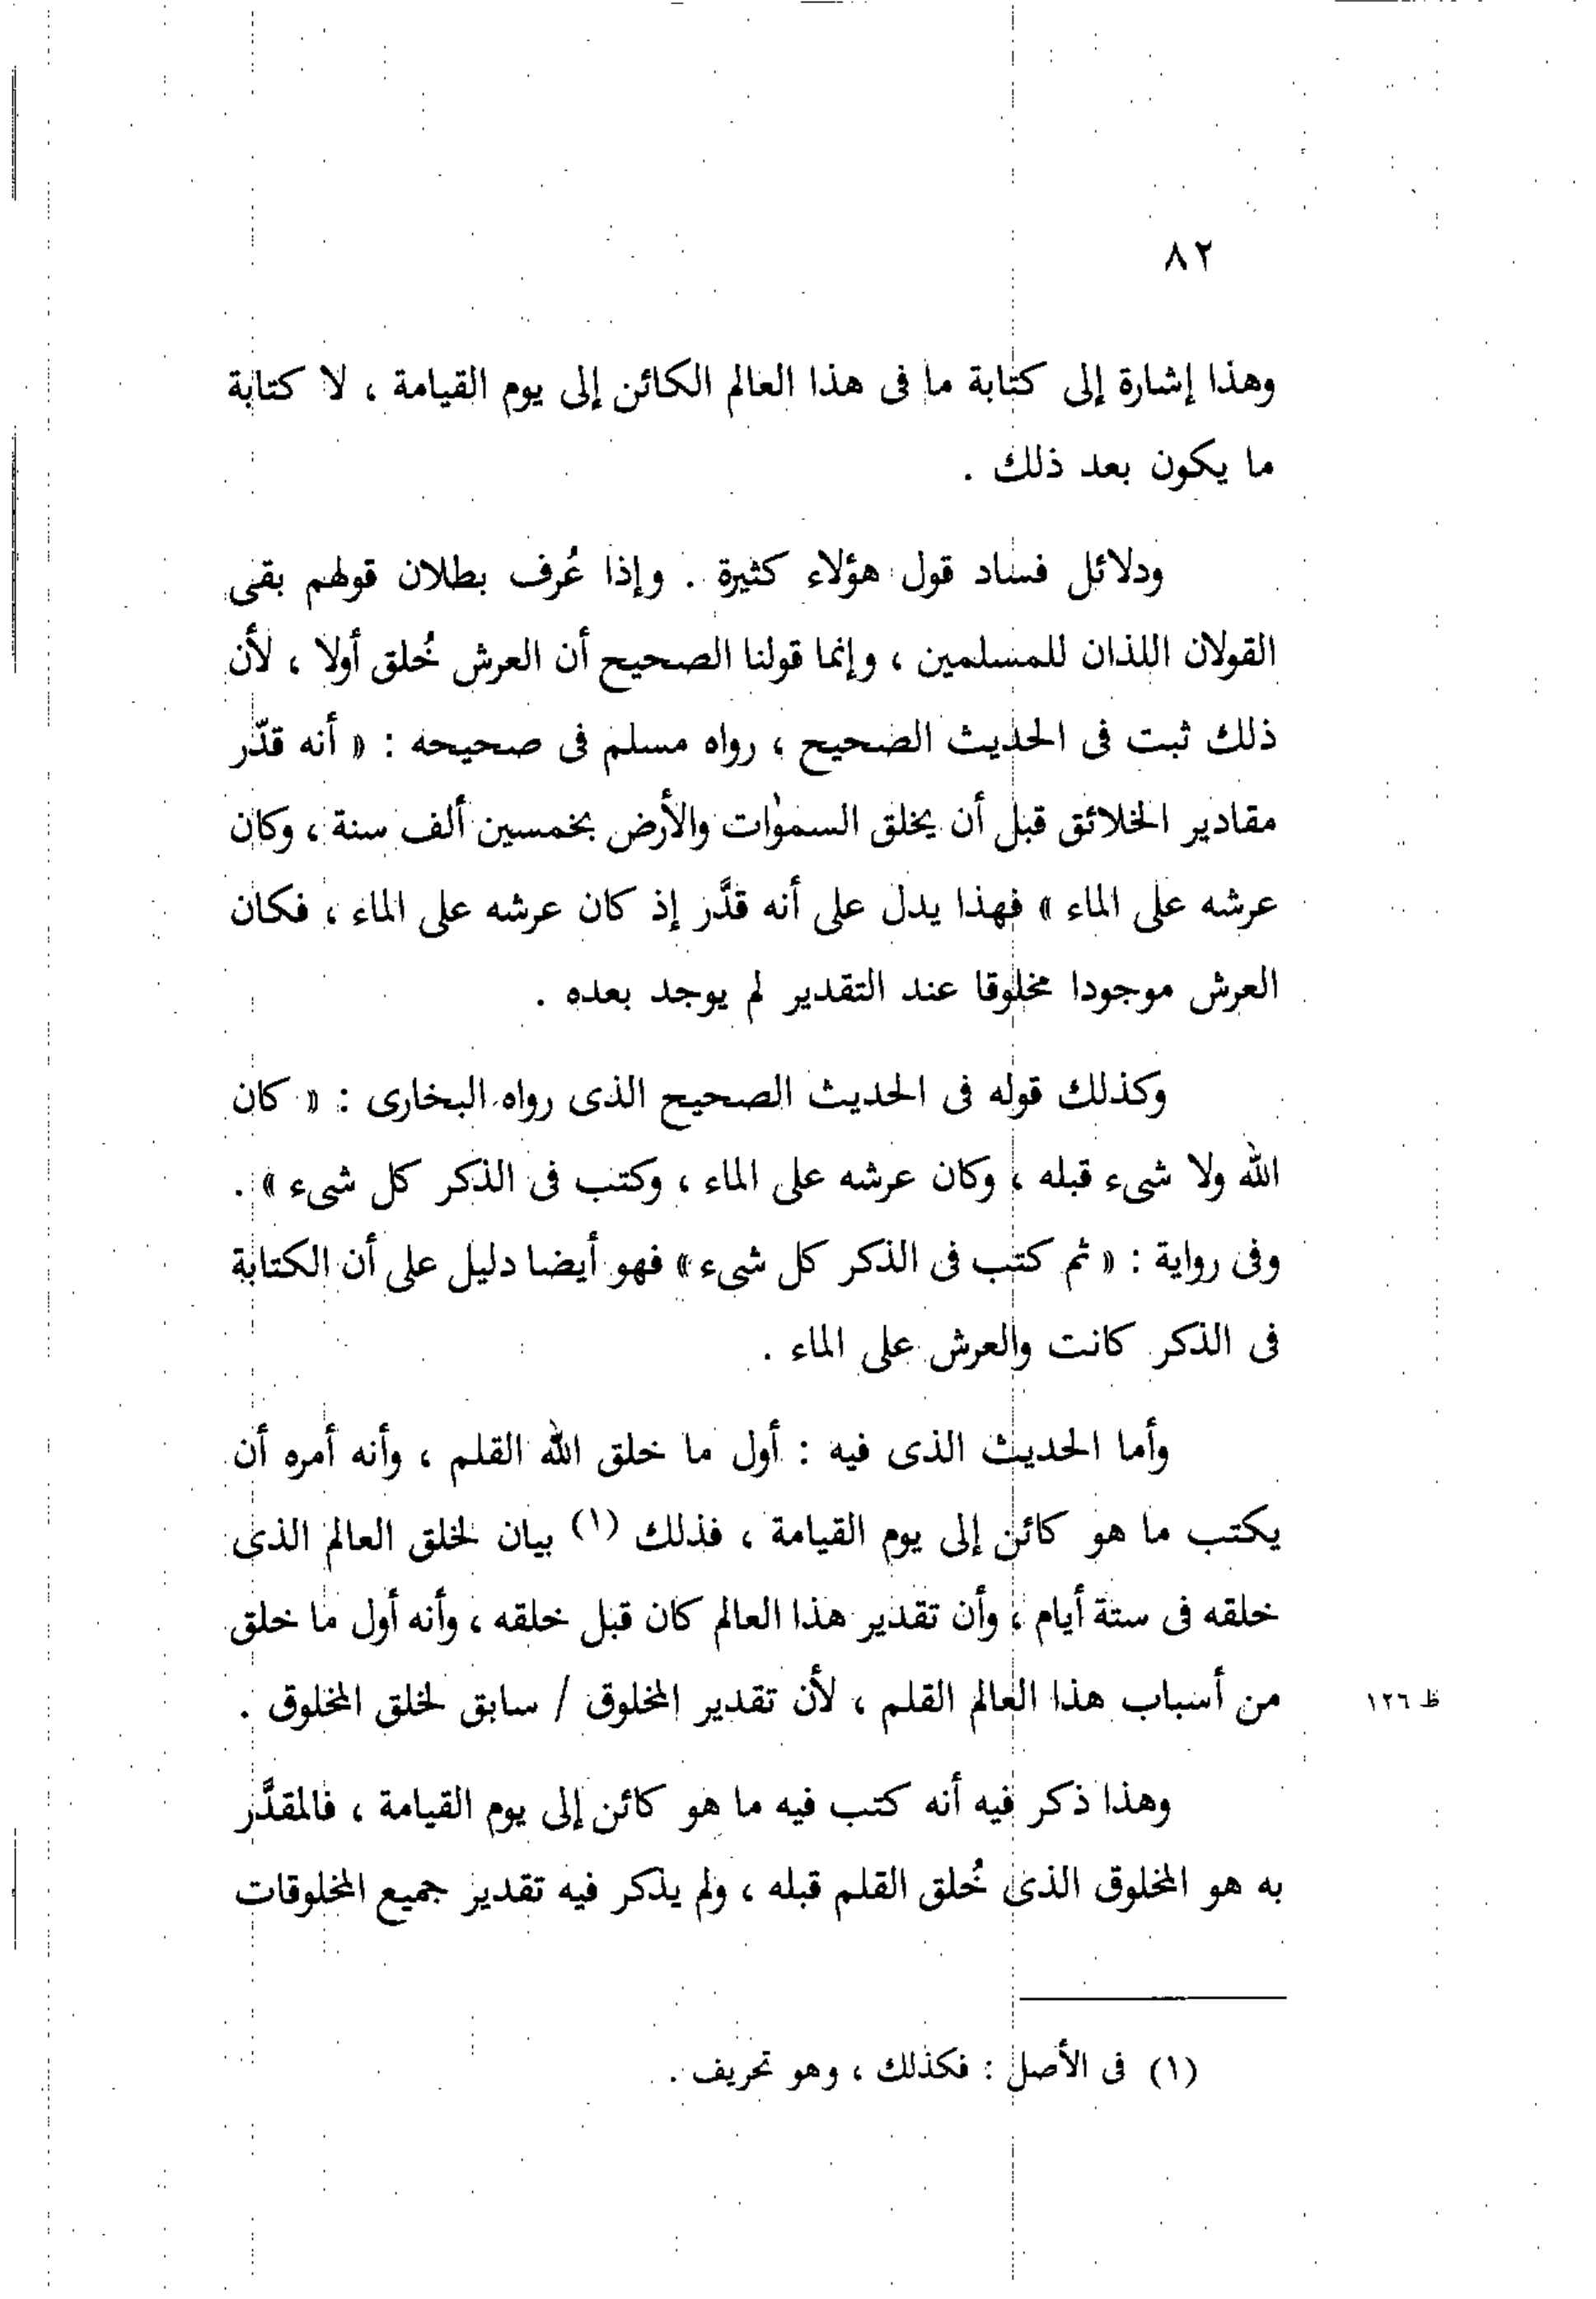 ٨٢
وهذا إشارة إلى كتابة ما فى هذا العالم الكائن إلى يوم القيامة ، لا كتابة
ما يكون بعد ذلك .
ودلائل فساد قول هؤلاء كثيرة . وإذا عُرف بطلان قولهم بقى
القولان اللذان للمسلمين ، وإنما قولنا الصحيح أن العرش خُلق أولا ، لأن
ذلك ثبت فى الحديث الصحيح ، رواه مسلم فى صحيحه : « أنه قدّر
مقادير الخلائق قبل أن يخلق السمٰوات والأرض بخمسين ألف سنة ، وكان
عرشه على الماء » فهذا يدل على أنه قدَّر إذ كان عرشه على الماء ، فكان
العرش موجودا مخلوقا عند التقدير لم يوجد بعده .
وكذلك قوله فى الحديث الصحيح الذى رواه البخارى : « كان
الله ولا شىء قبله ، وكان عرشه على الماء ، وكتب فى الذكر كل شىء » .
وفى رواية : « ثم كتب فى الذكر كل شىء » فهو أيضا دليل على أن الكتابة
فى الذكر كانت والعرش على الماء .
وأما الحديث الذى فيه : أول ما خلق الله القلم ، وأنه أمره أن
يكتب ما هو كائن إلى يوم القيامة ، فذلك (١) بيان لخلق العالم الذى
خلقه فى ستة أيام ، وأن تقدير هذا العالم كان قبل خلقه ، وأنه أول ما خلق
من أسباب هذا العالم القلم ، لأن تقدير المخلوق / سابق لخلق المخلوق .
ظ ١٢٦
وهذا ذكر فيه أنه كتب فيه ما هو كائن إلى يوم القيامة ، فالمقدَّر
به هو المخلوق الذى خُلق القلم قبله ، ولم يذكر فيه تقدير جميع المخلوقات
(١) فى الأصل : فكذلك ، وهو تحريف .